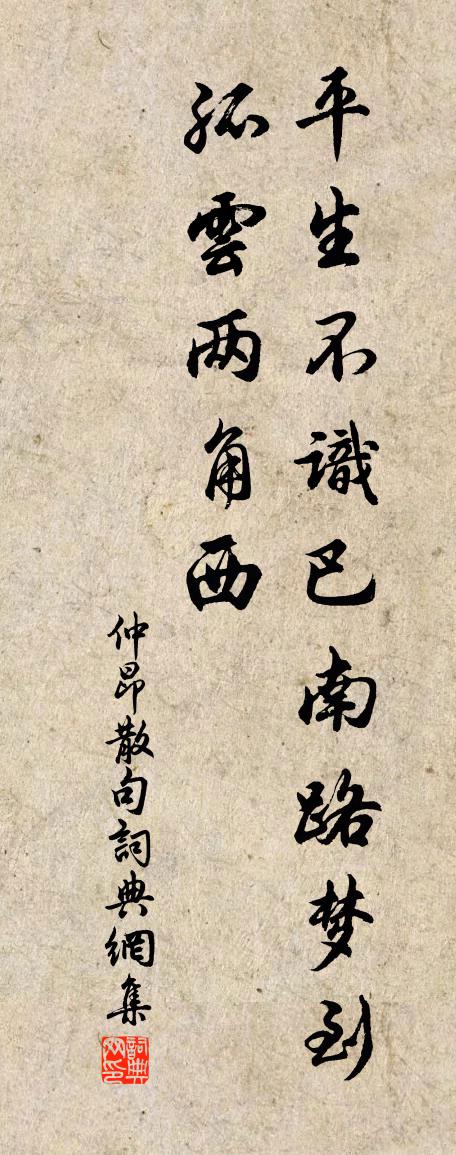 平生不識巴南路梦到
孤雲两角西
仲昂散句詞典網集
詞典网印